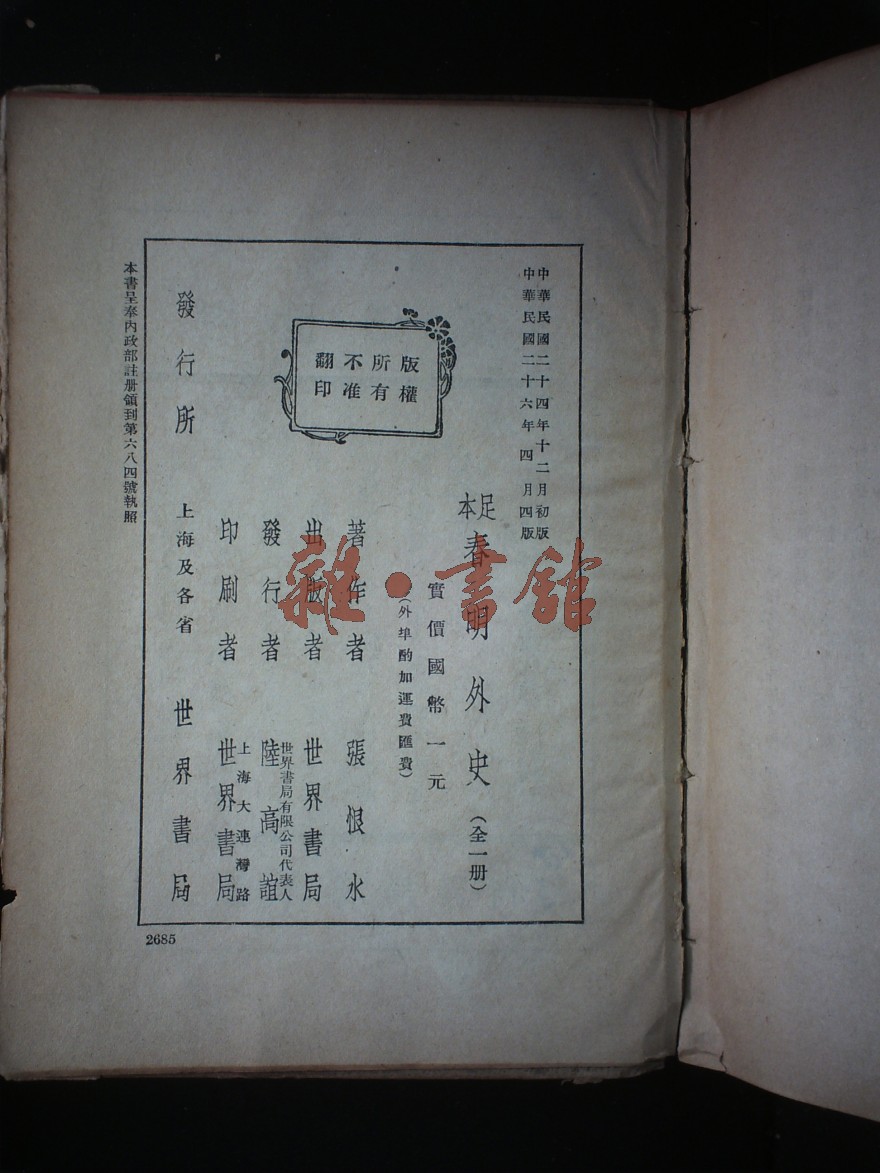 中華民國二十四年十二月初版
中華民國二十六年四月四版
足本 春明外史 (全一册)
實價國幣一元
(外埠酌加運費匯費)
版權
所有
不准
翻印
著作者 張恨水
出版者 世界書局
發行者 世界書局有限公司代表人 陸高誼
印刷者 上海大連灣路 世界書局
發行所 上海及各省 世界書局
本書呈奉內政部註册領到第六八四號執照
2685
雜·書館